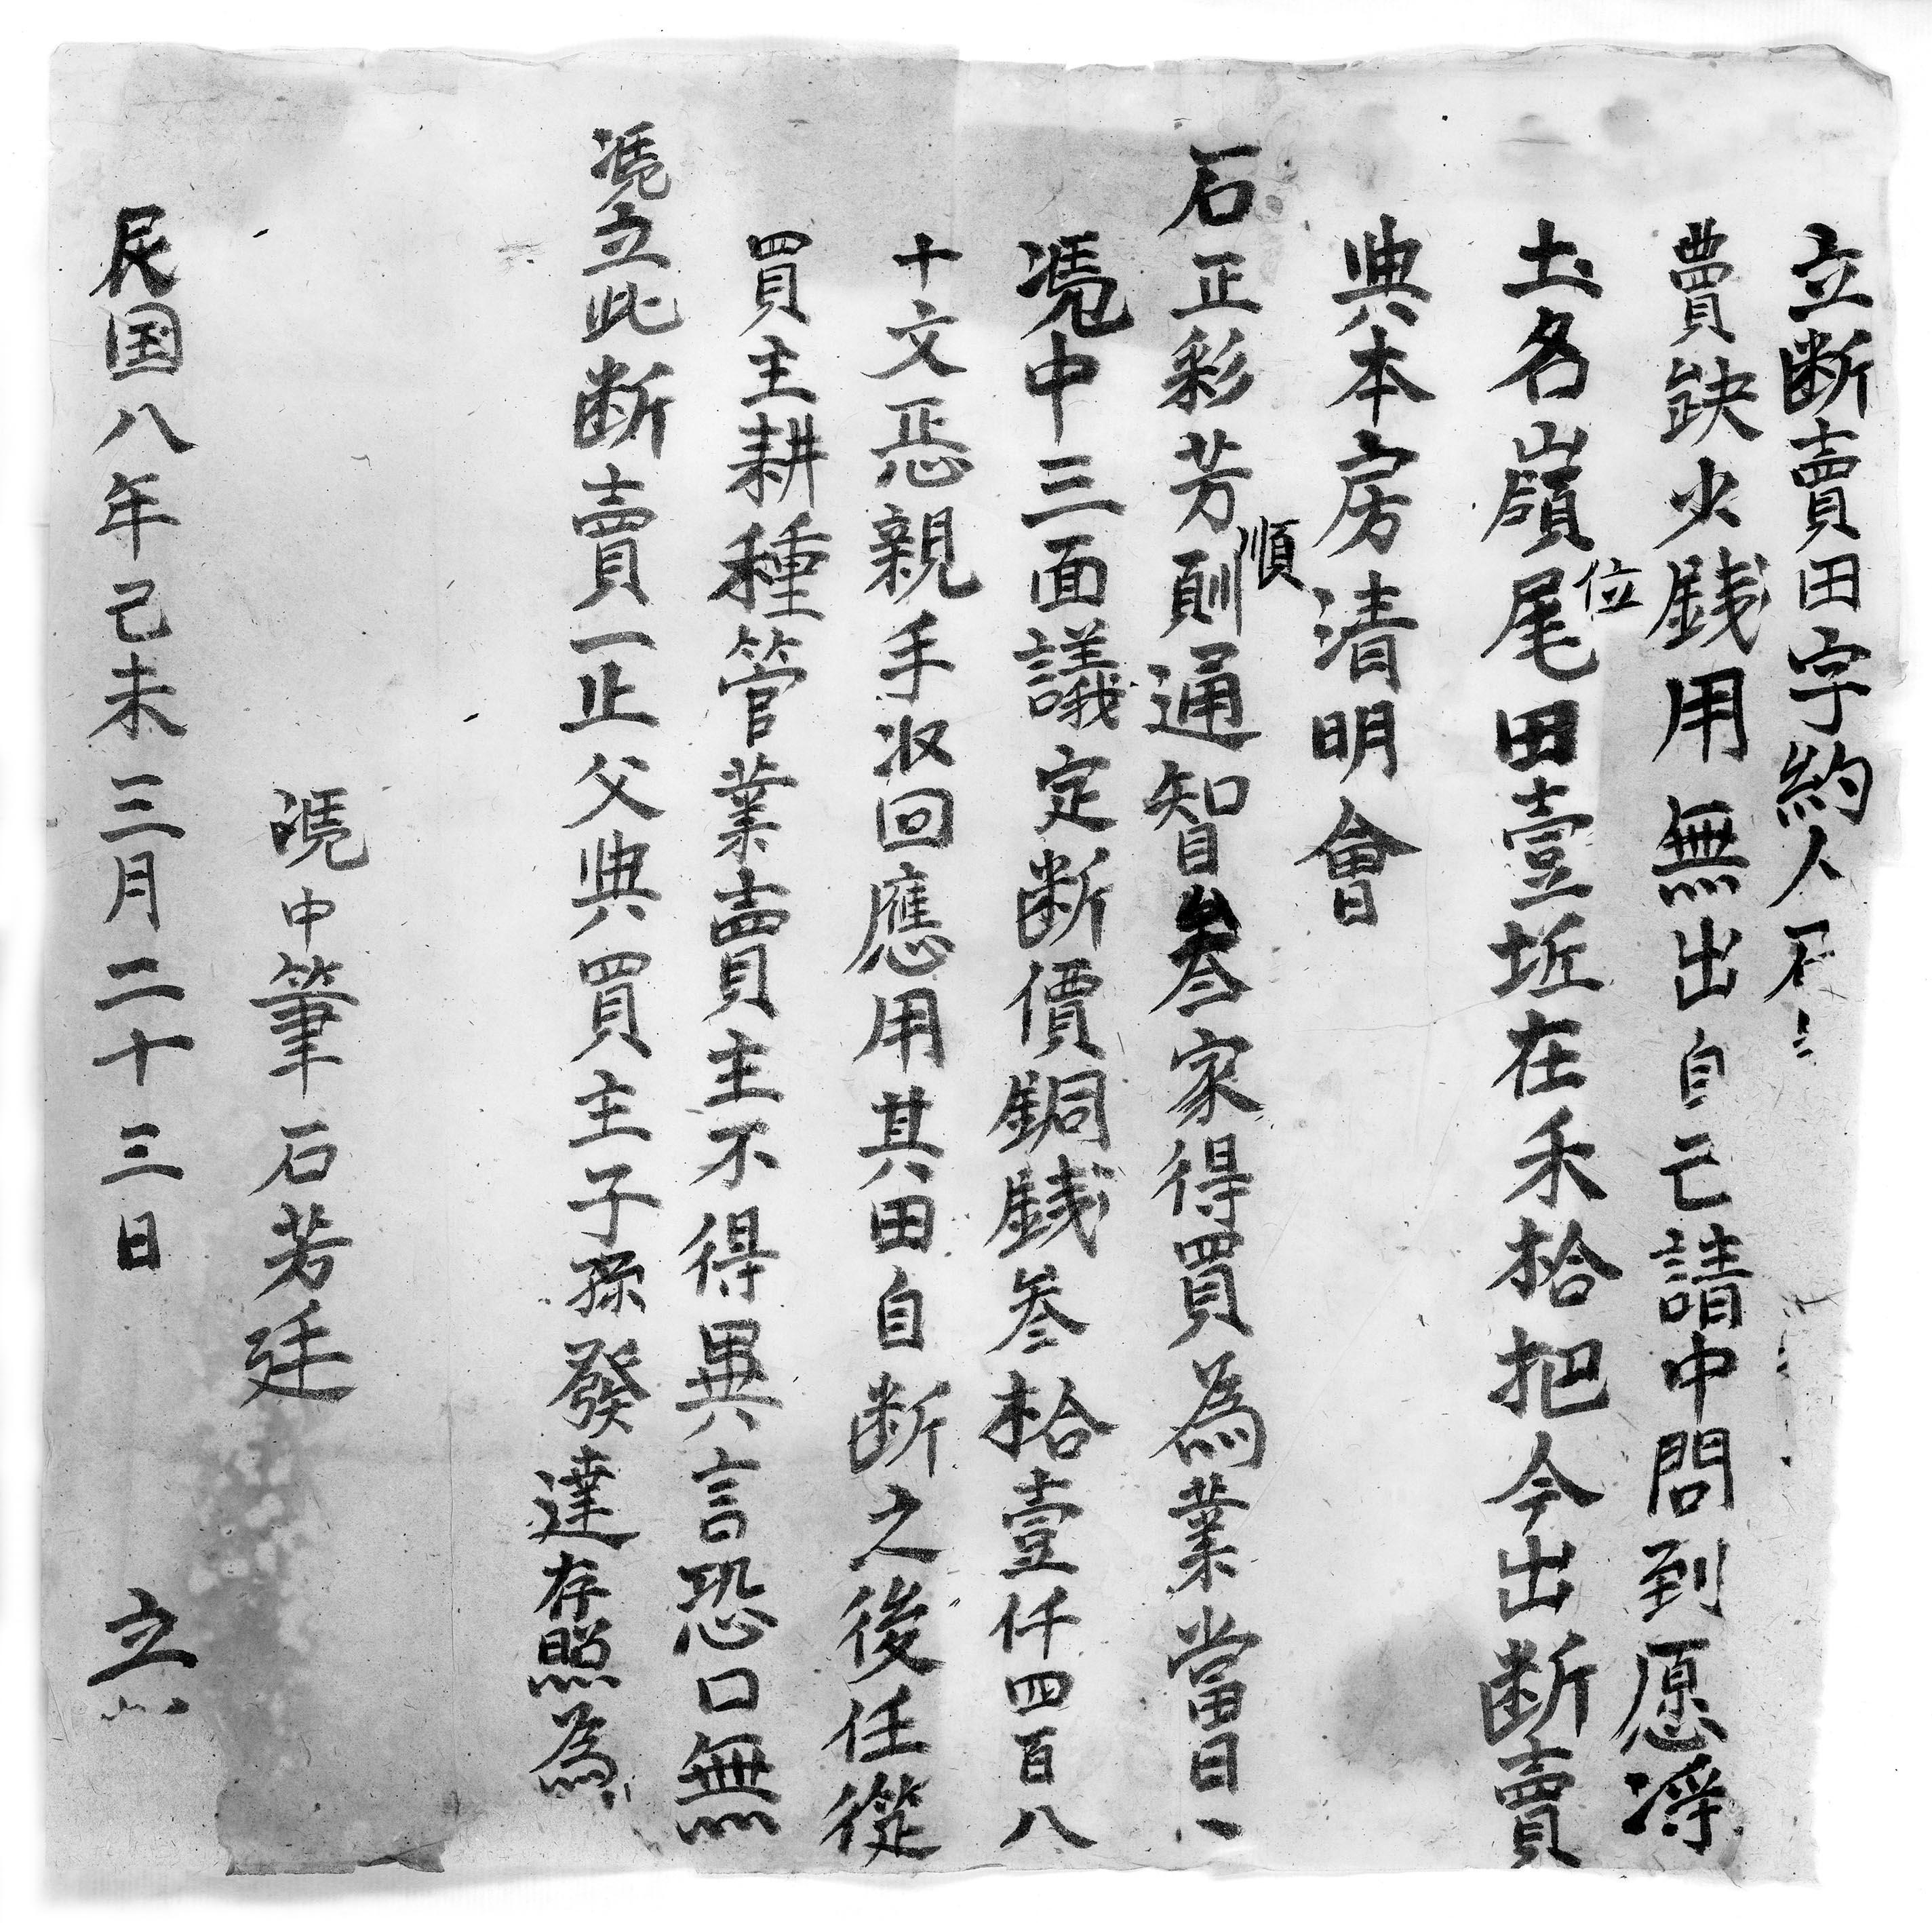 立断賣田字約人石
費缺少銭用無出自己請中問到愿淂
土名嶺尾位田壹坵在禾拾把今出断賣
典本房清明會
石正彩芳順則通智叁家得買為業當日
憑中三面議定断價銅銭叁拾壹仟四百八
十文㤅親手収回應用其田自断之後任從
買主耕種管業賣主不得異言恐口無
憑立此断賣一止父典買主子孫發達存照為
憑中筆石芳廷
民国八年己未三月二十三日 立